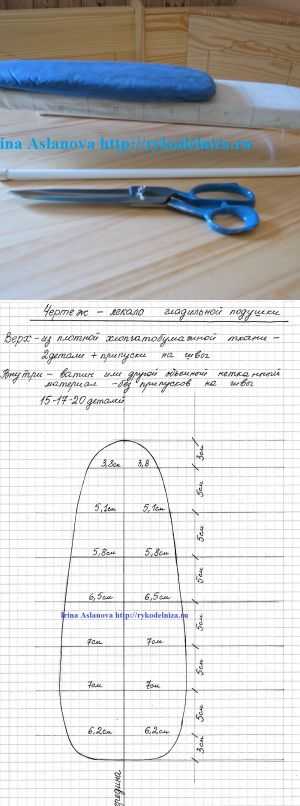 ina Aslanova http://rykodelniza.ru
Чертеж - лекало гладильной подушки
Верх - из плотной хлопчатобумажной ткани -
2 детали + припуски на швы
Внутри - ватин или другой объемный нетканный
материал - без припусков на швы
15-17-20 деталей
3,8см 3,8 3см
5см
5,1см 5,1см
5см
5,8см 5,8см
5см
6,5см 6,5см
Irina Aslanova http://rykodelniza.ru
5см
7см 7см
5см
7см 7см
5см
6,2см 6,2см
3см
середина